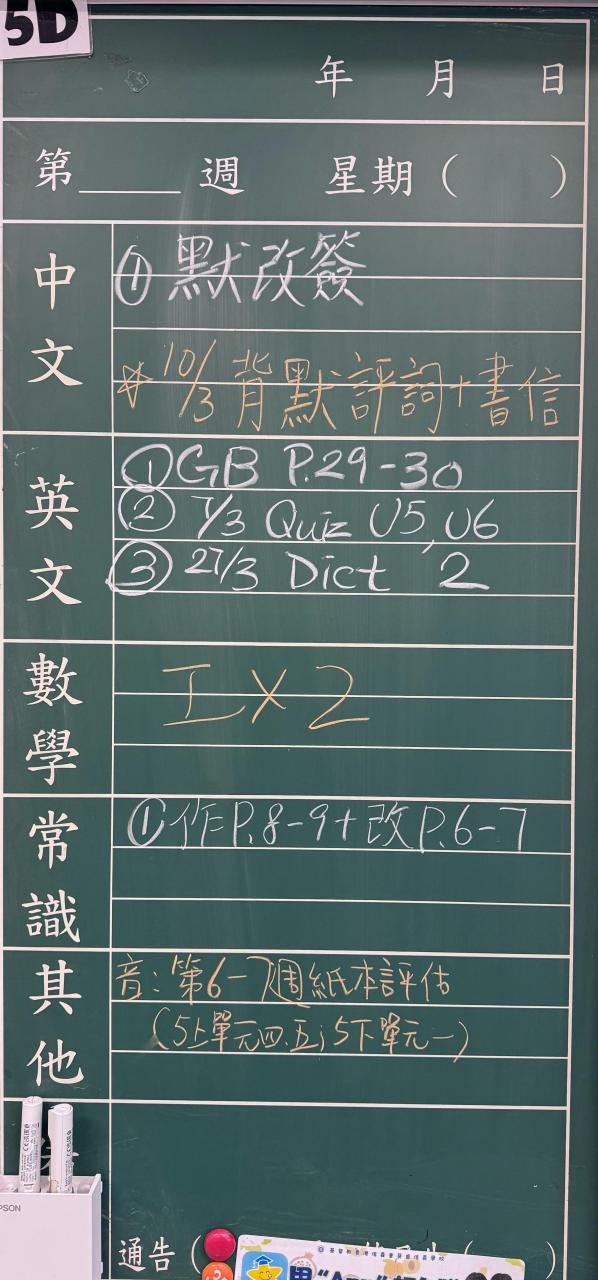 5D
年 月 日
第 週 星期( )
中文
① 默改簽
☆ 10/3 背默評詞+書信
英文
① GB P.29-30
② 7/3 Quiz U5, U6
③ 27/3 Dict 2
數學
工×2
常識
① 作P.8-9+改P.6-7
其他
音:第6-7週紙本評估
(5上單元四、五;5下單元一)
通告(
PSON